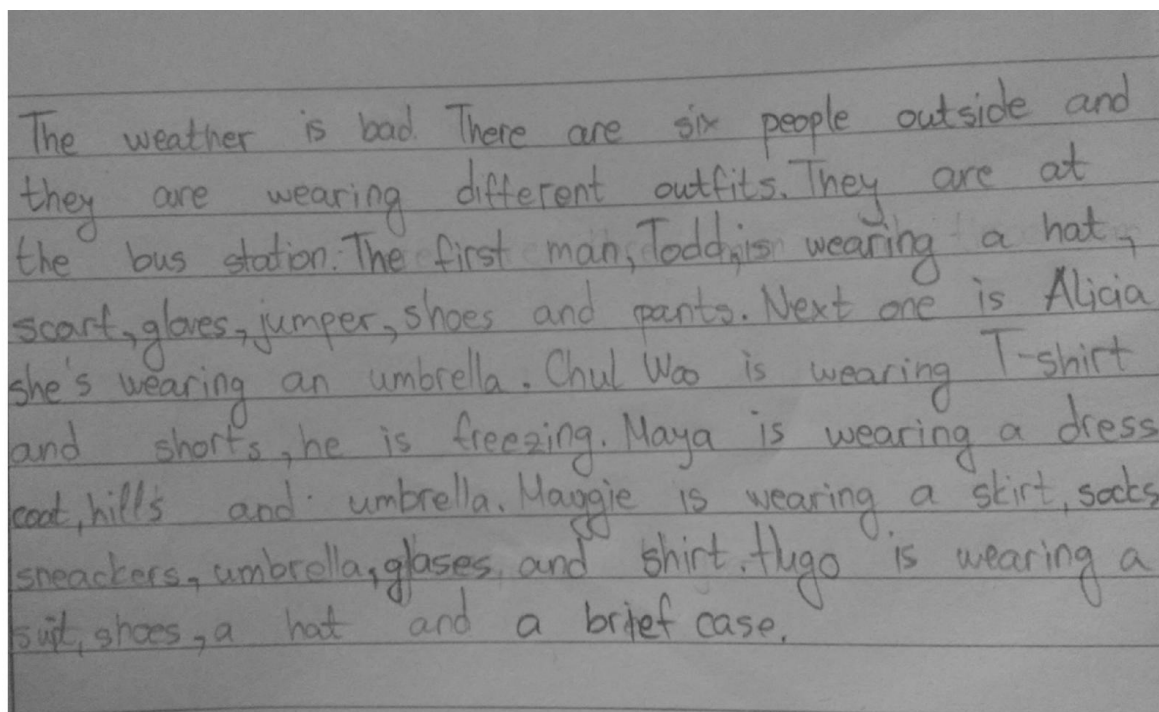 The weather is bad. There are six people outside and
they are wearing different outfits. They are at
the bus station. The first man, Todd, is wearing a hat,
scarf, gloves, jumper, shoes and pants. Next one is Alicia
she's wearing an umbrella. Chul Woo is wearing T-shirt
and shorts, he is freezing. Maya is wearing a dress
coat, hills and umbrella. Maggie is wearing a skirt, socks
sneackers, umbrella, glases, and shirt. Hugo is wearing a
suit, shoes, a hat and a brief case.